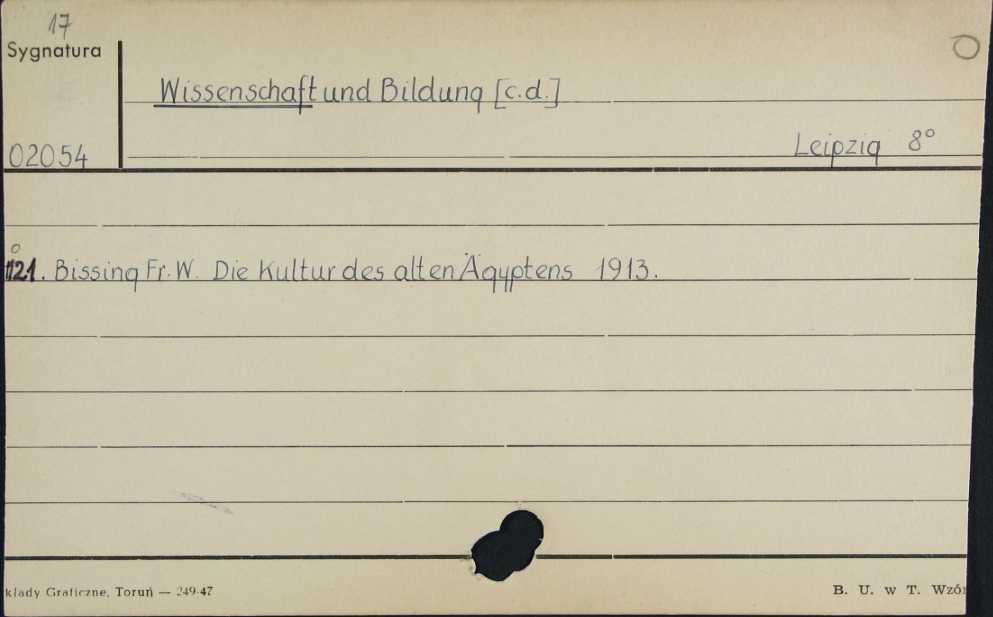 17
Sygnatura
Wissenschaft und Bildung [c.d.]
02054
Leipzig 8°
121. Bissing Fr. W. Die Kultur des alten Ägyptens 1913.
kłady Graficzne, Toruń — 249-47
B. U. w T. Wzór